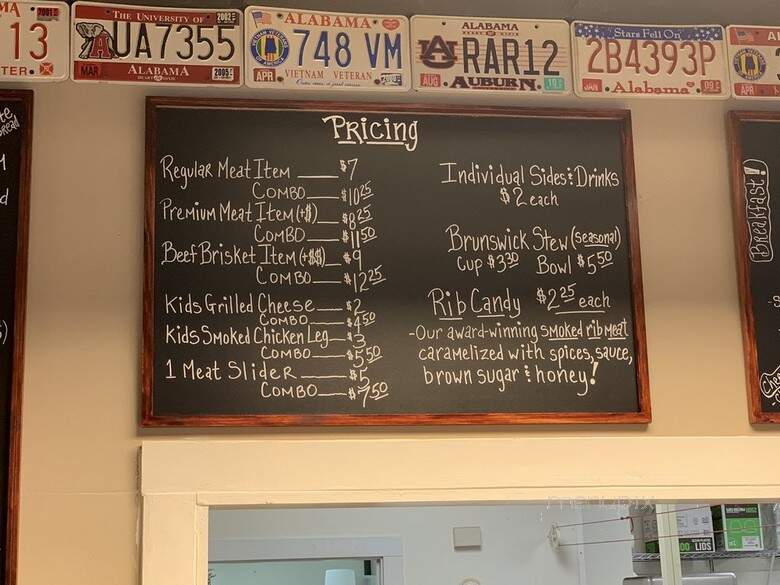 13
TER.
THE UNIVERSITY OF 2002
UA7355
MAR ALABAMA 2005
ALABAMA
748 VM
APR VIETNAM VETERAN
ALABAMA
RAR12
AUG AUBURN 10
Stars Fell On
2B4393P
JAN Alabama 09
APR
Pricing
Regular Meat Item $7
Combo $10.25
Premium Meat Item (+$) $8.25
Combo $11.50
Beef Brisket Item (+$$) $9
Combo $12.25
Kids Grilled Cheese $2
Combo $4.50
Kids Smoked Chicken Leg $3
Combo $5.50
1 Meat Slider $5
Combo $7.50
Individual Sides & Drinks
$2 each
Brunswick Stew (seasonal)
Cup $3.30 Bowl $5.50
Rib Candy $2.25 each
-Our award-winning smoked rib meat
caramelized with spices, sauce,
brown sugar & honey!
Breakfast!
LIDS